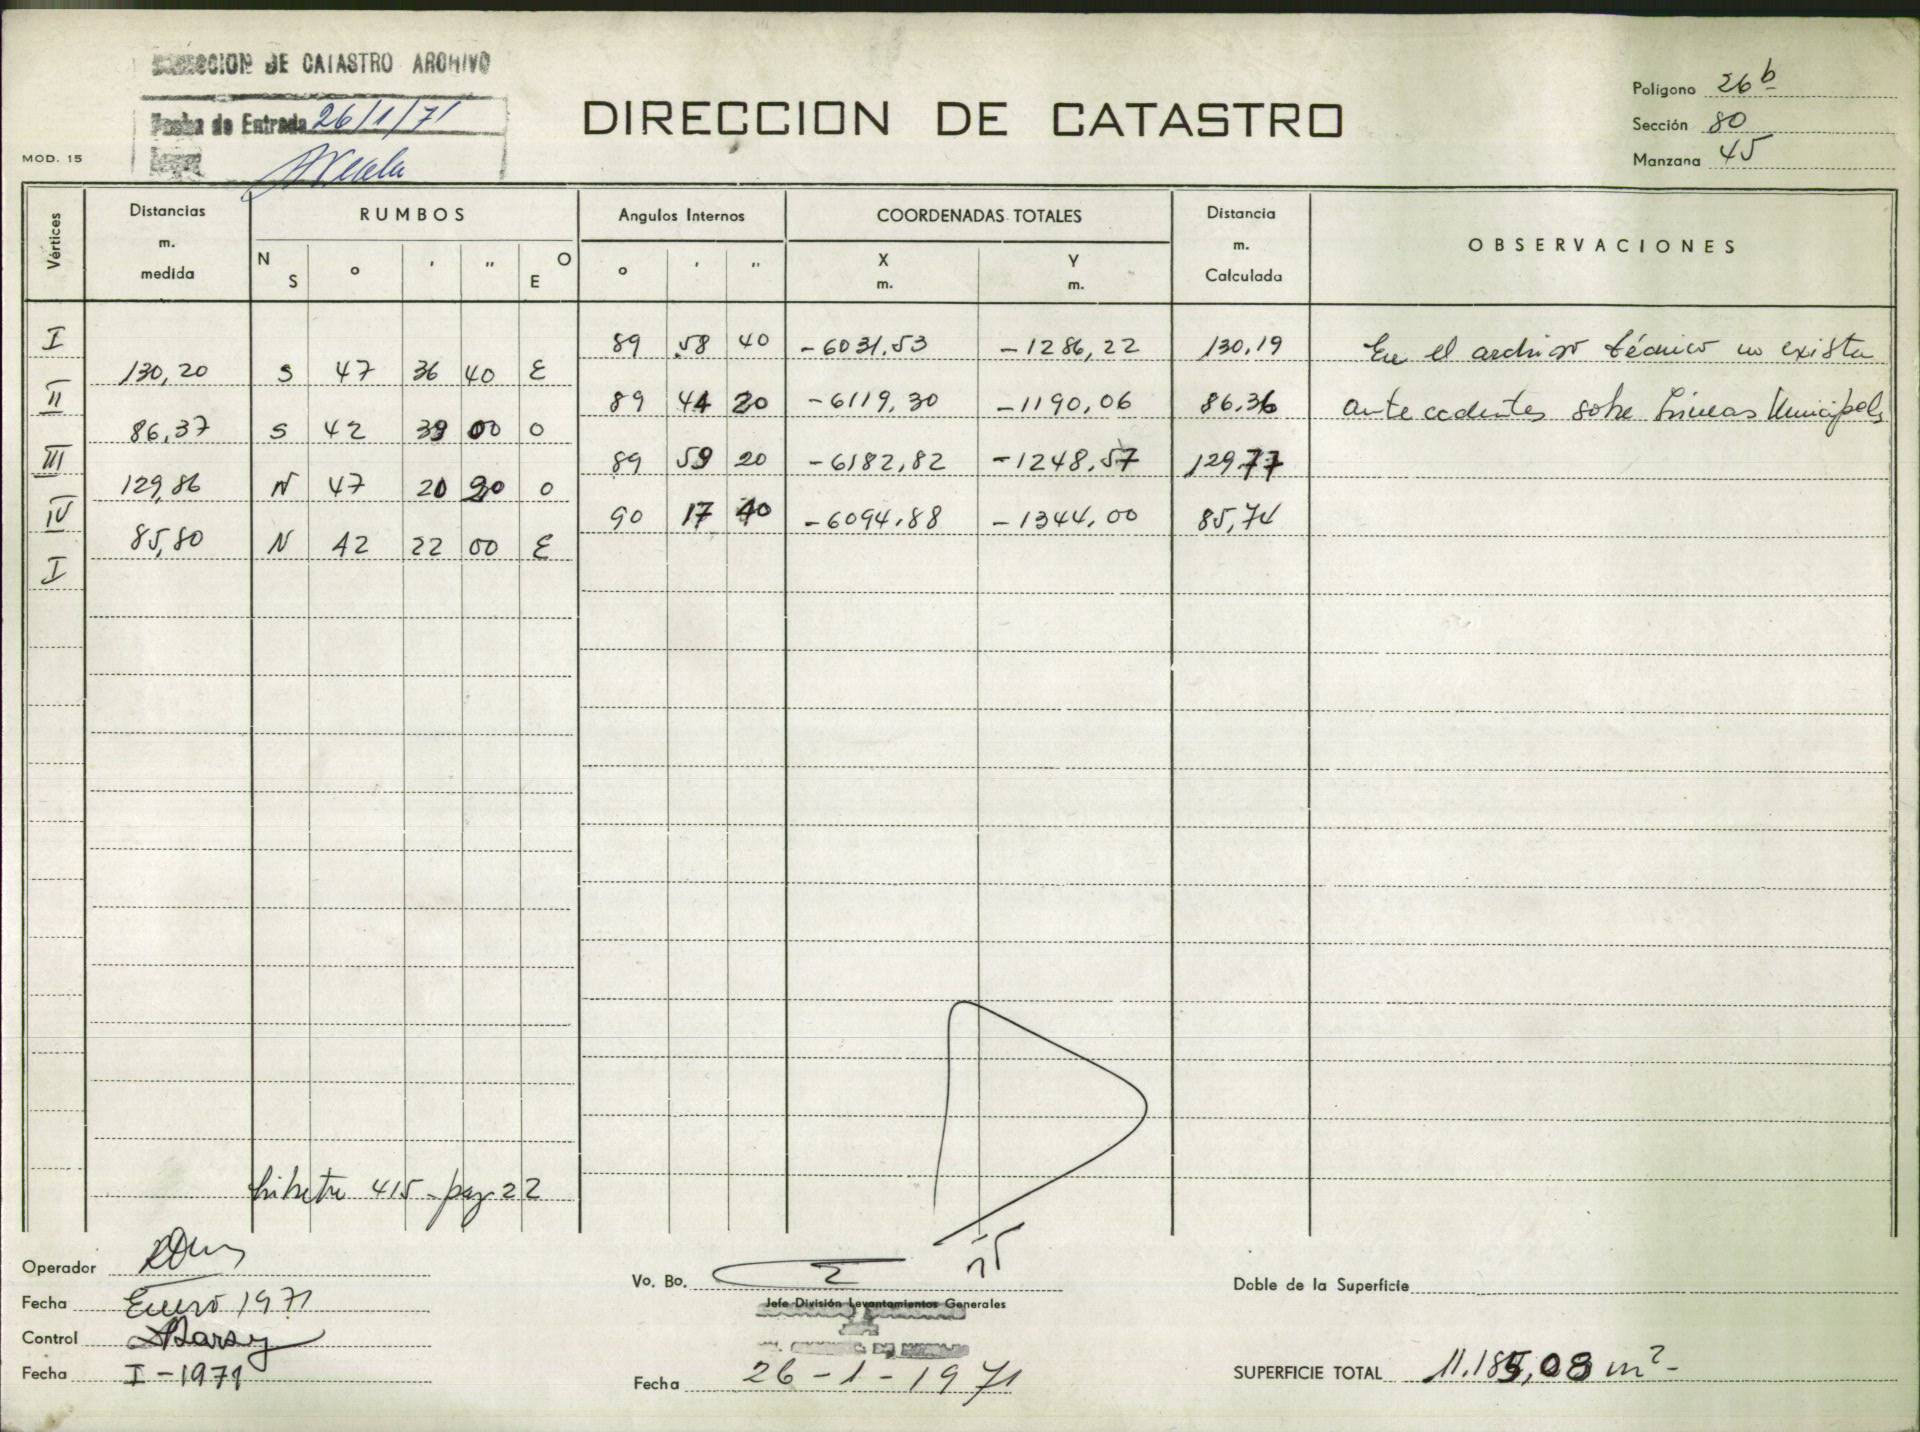 DIRECCION DE CATASTRO ARCHIVO
Fecha de Entrada 26/1/71
MOD. 15
DIRECCION DE CATASTRO
Polígono 26 b
Sección 80
Manzana 45
Vértices
Distancias m. medida
RUMBOS
N S ° ' " O E
Angulos Internos
° ' "
COORDENADAS TOTALES
X m. Y m.
Distancia m. Calculada
OBSERVACIONES
I 89 58 40 -6031,53 -1286,22 130,19 En el archivo técnico no exista
130,20 S 47 36 40 E
II 89 44 20 -6119,30 -1190,06 86,36 antecedentes sobre Líneas Municipales
86,37 S 42 39 00 O
III 89 59 20 -6182,82 -1248,57 129,77
129,86 N 47 20 20 O
IV 90 17 40 -6094,88 -1344,00 85,74
85,80 N 42 22 00 E
I
Libreta 415 - pag 22
Operador
Fecha Enero 1971
Control
Fecha I-1971
Vo. Bo.
Jefe División Levantamientos Generales
Fecha 26-1-1971
Doble de la Superficie
SUPERFICIE TOTAL 11.185,08 m²-